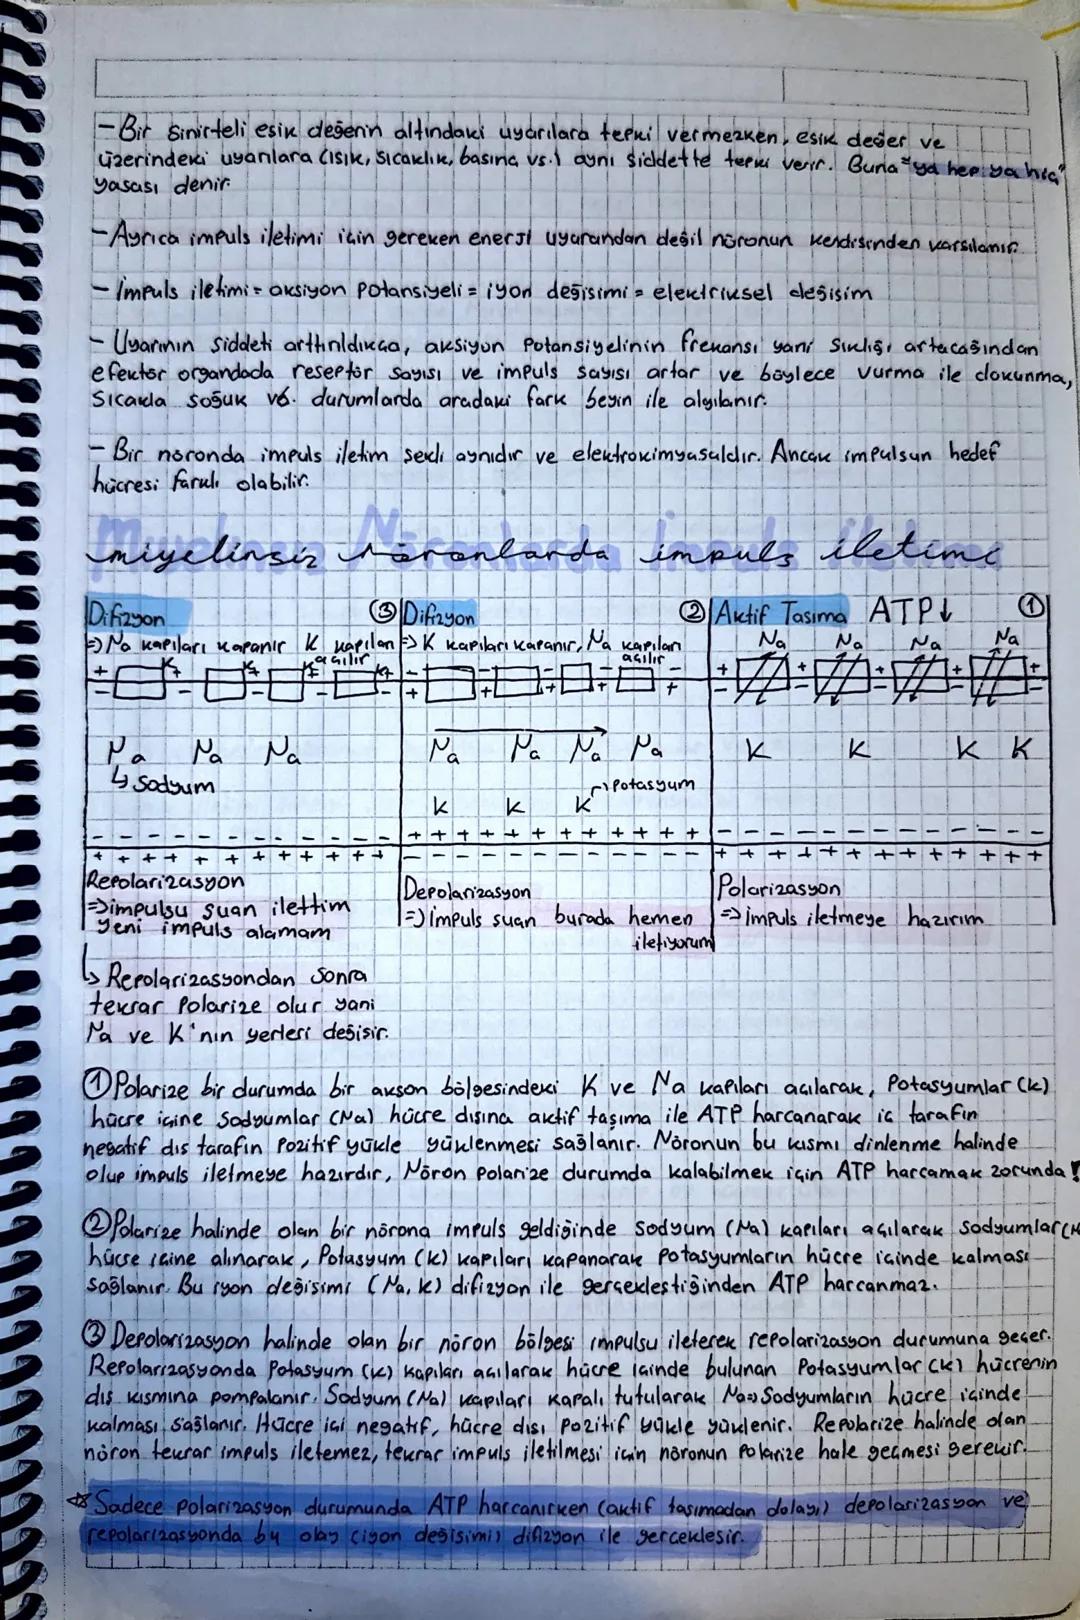 - Bir sinirteli eşik değerin altındaki uyarılara tepki vermezken, eşik değer ve
üzerindeki uyarılara (ışık, sıcaklık, basınç vs.) aynı şiddette tepki verir. Buna "ya hep ya hiç"
yasası denir.
- Ayrıca impuls iletimi için gereken enerji uyarandan değil nöronun kendisinden karşılanır.
- İmpuls iletimi = aksiyon potansiyeli = iyon değişimi = elektriksel değişim
- Uyarının şiddeti arttırıldıkça, aksiyon potansiyelinin frekansı yani sıklığı artacağından
efektör organdada reseptör sayısı ve impuls sayısı artar ve böylece vurma ile dokunma,
sıcakla soğuk vb. durumlarda aradaki fark beyin ile algılanır.
- Bir nöronda impuls iletim şekli aynıdır ve elektrokimyasaldır. Ancak impulsun hedef
hücresi farklı olabilir.
Miyelinsiz Nöronlarda İmpuls İletimi
miyelinsiz nöronlarda impuls iletimi
Difizyon ③ Difizyon ② Aktif Taşıma ATP↓ ①
=> Na kapıları kapanır K kapıları açılır => K kapıları kapanır, Na kapıları açılır Na Na Na Na
+ K+ + K+ K+ K+ - - - - - + + + + +
- - - - + + + + + - - - - -
Na Na Na Na Na Na Na K K K K
↳ Sodyum → Potasyum
K K K
- - - - - - - - - - - - + + + + + + + + + + + + - - - - - - - - - - - - -
+ + + + + + + + + + + + - - - - - - - - - - - - + + + + + + + + + + + + +
Repolarizasyon Depolarizasyon Polarizasyon
=> impulsu şuan ilettim => impuls şuan burada hemen => impuls iletmeye hazırım
yeni impuls alamam iletiyorum
↳ Repolarizasyondan sonra
tekrar Polarize olur yani
Na ve K'nın yerleri değişir.
① Polarize bir durumda bir akson bölgesindeki K ve Na kapıları açılarak, Potasyumlar (K)
hücre içine Sodyumlar (Na) hücre dışına aktif taşıma ile ATP harcanarak iç tarafın
negatif dış tarafın pozitif yükle yüklenmesi sağlanır. Nöronun bu kısmı dinlenme halinde
olup impuls iletmeye hazırdır, Nöron polarize durumda kalabilmek için ATP harcamak zorunda!
② Polarize halinde olan bir nörona impuls geldiğinde sodyum (Na) kapıları açılarak sodyumlar (N
hücre içine alınarak, Potasyum (K) kapıları kapanarak potasyumların hücre içinde kalması
sağlanır. Bu iyon değişimi (Na, K) difizyon ile gerçekleştiğinden ATP harcanmaz.
③ Depolarizasyon halinde olan bir nöron bölgesi impulsu ileterek repolarizasyon durumuna geçer.
Repolarizasyonda Potasyum (K) kapıları açılarak hücre içinde bulunan Potasyumlar (K) hücrenin
dış kısmına pompalanır. Sodyum (Na) kapıları kapalı tutularak Na=>Sodyumların hücre içinde
kalması sağlanır. Hücre içi negatif, hücre dışı pozitif yükle yüklenir. Repolarize halinde olan
nöron tekrar impuls iletemez, tekrar impuls iletilmesi için nöronun polarize hale geçmesi gerekir.
☆ Sadece polarizasyon durumunda ATP harcanırken (aktif taşımadan dolayı) depolarizasyon ve
repolarizasyonda bu olay (iyon değişimi) difizyon ile gerçekleşir.